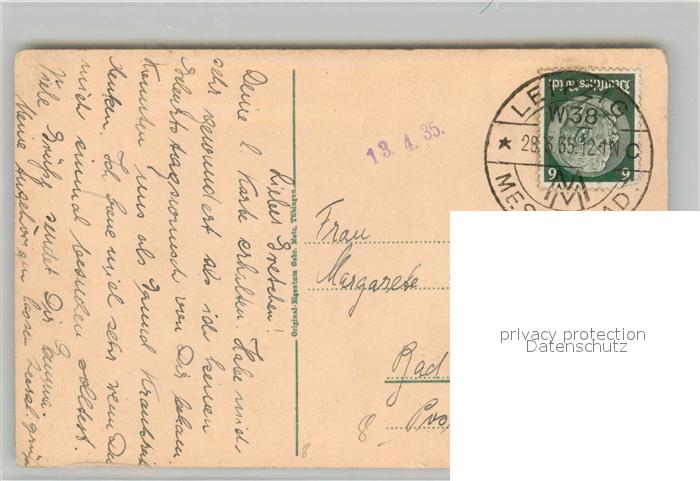 Liebes Gretchen!
Deine l. Karte erhalten. Habe mich
sehr gewundert als ich keinen
Geburtstagswunsch von Dir bekam.
Konnten uns als Grund Krankheit
denken. Ich freue mich sehr wenn Du
mich einmal besuchen solltest.
Viele Grüße sendet Dir
Meine Angehörigen lassen herzl. grüß
Original-Eigentum Gebr. Metz, Tübingen
13. 4. 35.
LE
C
W38
28.3.35.12-1N
MES
AD
Deutsches Reich
6
6
Frau
Margarete
Bad
Pos
privacy protection
Datenschutz